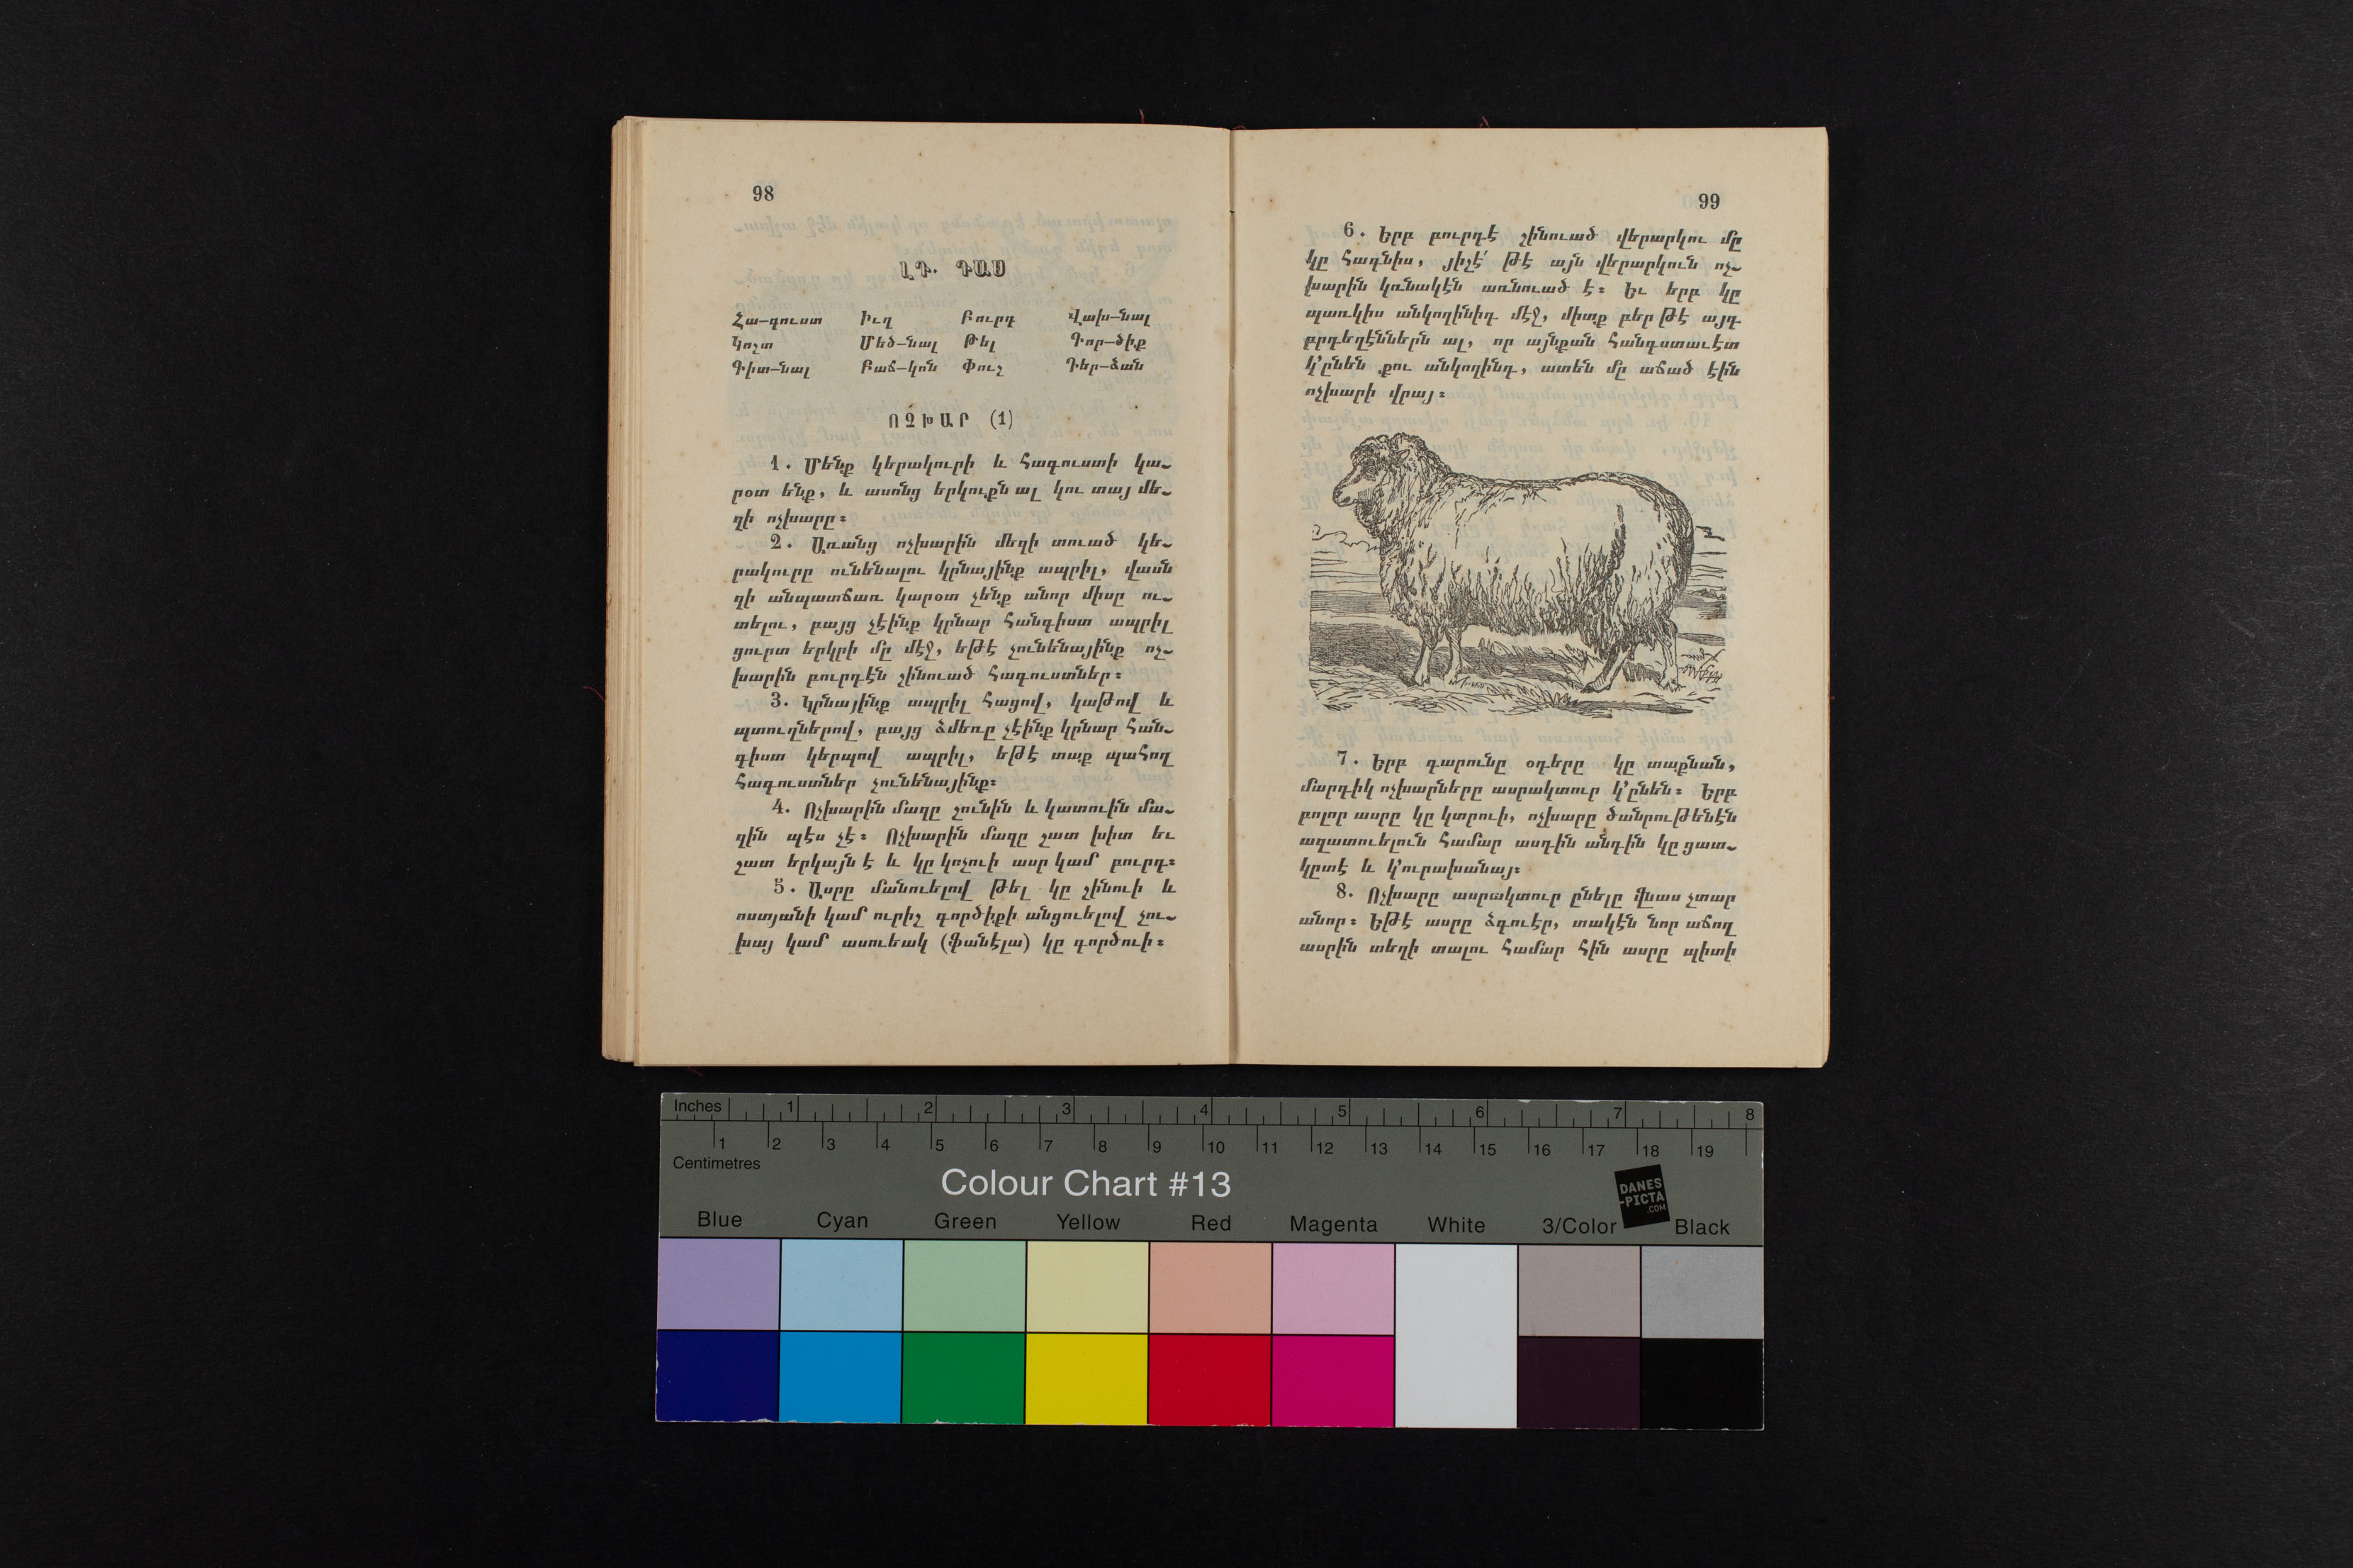 98
ԼԴ. ԴԱՍ
Հա-գուստ Իւղ Բուրդ Վախ-նալ
Կոշտ Մեծ-նալ Թել Գոր-ծիք
Գիտ-նալ Բաճ-կոն Փուշ Դեր-ձան
ՈՉԽԱՐ (1)
1. Մենք կերակուրի և հագուստի կա-
րօտ ենք, և ասոնց երկուքն ալ կու տայ մե-
զի ոչխարը։
2. Առանց ոչխարին մեզի տուած կե-
րակուրը ունենալու կրնայինք ապրիլ, վասն
զի անպատճառ կարօտ չենք անոր միսը ու-
տելու, բայց չէինք կրնար հանգիստ ապրիլ
ցուրտ երկրի մը մէջ, եթէ չունենայինք ոչ-
խարին բուրդէն շինուած հագուստներ։
3. Կրնայինք ապրիլ հացով, կաթով և
պտուղներով, բայց ձմեռը չէինք կրնար հան-
գիստ կերպով ապրիլ, եթէ տաք պահող
հագուստներ չունենայինք։
4. Ոչխարին մազը շունին և կատուին մա-
զին պէս չէ։ Ոչխարին մազը շատ խիտ եւ
շատ երկայն է և կը կոչուի ասր կամ բուրդ։
5. Ասրը մանուելով թել կը շինուի և
ոստյանի կամ ուրիշ գործիքի անցուելով չու-
խայ կամ ասուեակ (ֆանէլա) կը գործուի։
99
6. Երբ բուրդէ շինուած վերարկու մը
կը հագնիս, յիշէ՛ թէ այն վերարկուն ոչ-
խարին կռնակէն առնուած է։ Եւ երբ կը
պառկիս անկողինիդ մէջ, միտք բեր թէ այդ
բրդեղէններն ալ, որ այնքան հանգստաւէտ
կ՚ընեն քու անկողինդ, ատեն մը աճած էին
ոչխարի վրայ։
7. Երբ գարունը օդերը կը տաքնան,
մարդիկ ոչխարները ասրակտուր կ՚ընեն։ Երբ
բոլոր ասրը կը կտրուի, ոչխարը ծանրութենէն
ազատուելուն համար ասդին անդին կը ցատ-
կըտէ և կ՚ուրախանայ։
8. Ոչխարը ասրակտուր ընելը վնաս չտար
անոր։ Եթէ ասրը ձգուէր, տակէն նոր աճող
ասրին տեղի տալու համար հին ասրը պիտի
Inches 1 2 3 4 5 6 7 8
1 2 3 4 5 6 7 8 9 10 11 12 13 14 15 16 17 18 19
Centimetres
Colour Chart #13
DANES
-PICTA
.COM
Blue Cyan Green Yellow Red Magenta White 3/Color Black